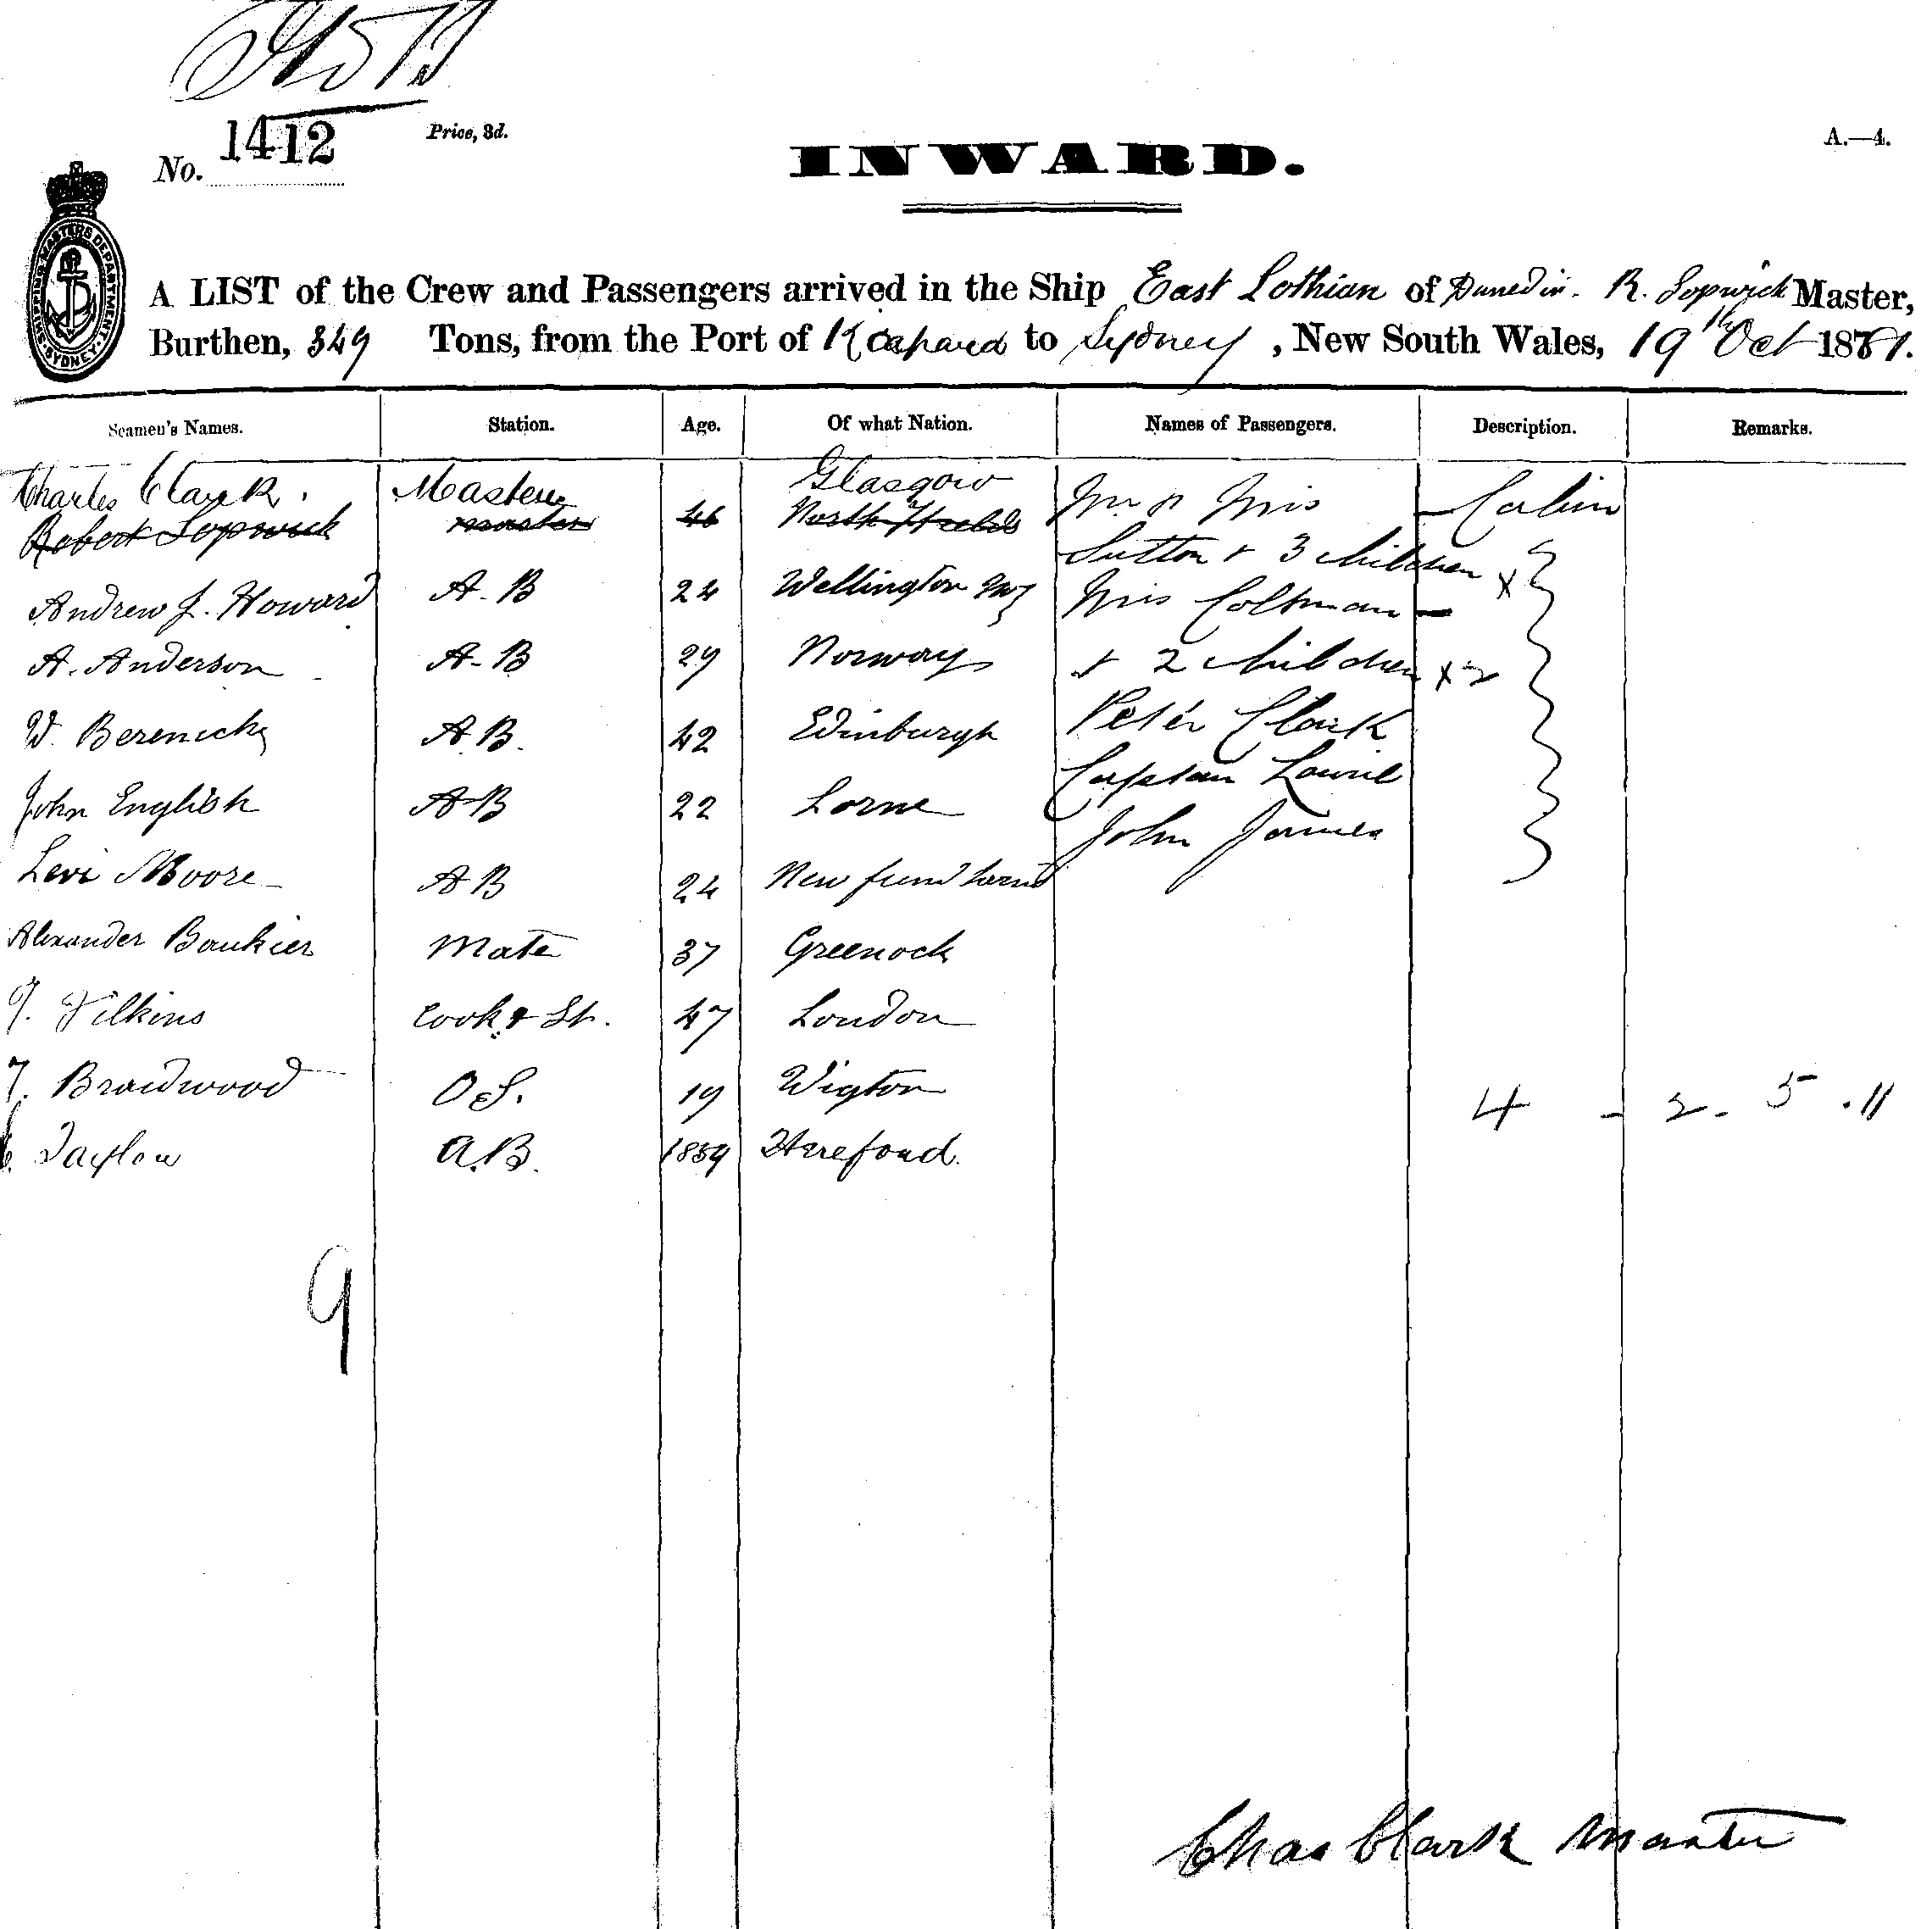 No. 1412
Price, 3d.
A.—4.
INWARD.
SHIPPING MASTERS DEPARTMENT SYDNEY
A LIST of the Crew and Passengers arrived in the Ship East Lothian of Dunedin. R. Sopwick Master,
Burthen, 349 Tons, from the Port of to Sydney, New South Wales, 19th Oct 1881.
Seamen's Names. Station. Age. Of what Nation. Names of Passengers. Description. Remarks.
Charles Clark. Master Glasgow Mr & Mrs Cabin
Robert Sopwick master 46 North Shields
Sutton & 3 children x
Andrew J. Howard A.B 24 Wellington NZ Mrs Coltman
A. Anderson A-B 29 Norway & 2 children x 2
W. A.B. 42 Edinburgh Peter Clark
John English A-B 22 Lorne Captan Lawrie
John James
Levi Moore A B 24 New fund land
Alexander Bankier Mate 37 Greenock
J. Filkins Cook & St. 47 London
T. Braidwood O.S. 19 Wigton 4 - 2. 5 . 11
Taylow A.B. 1859 Hereford.
9
Chas Clark Master